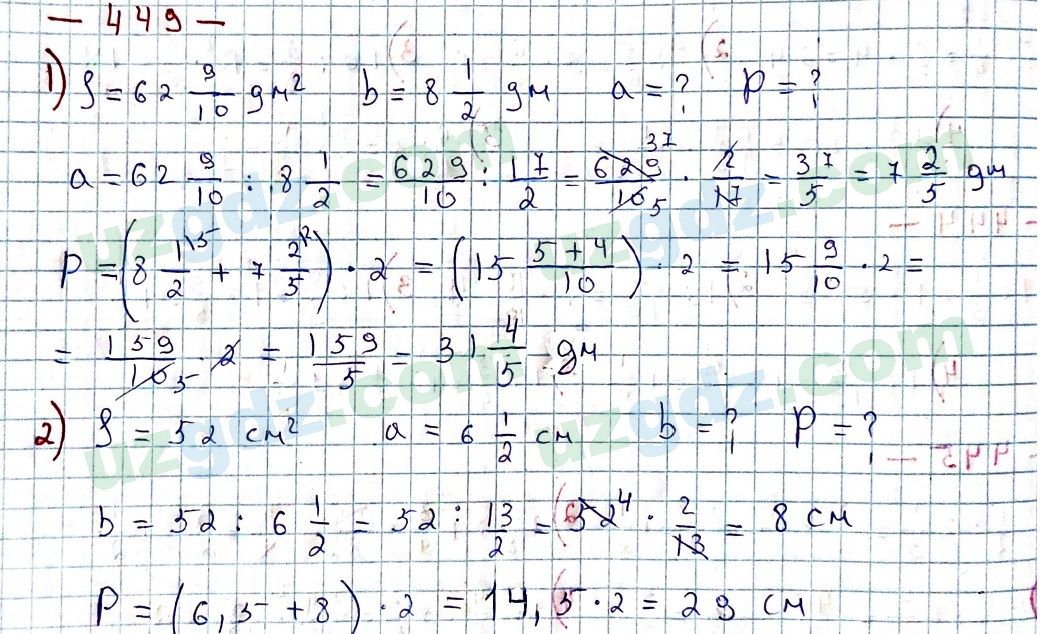 — 449 —
1) S = 62 9/10 дм² b = 8 1/2 дм a = ? P = ?
a = 62 9/10 : 8 1/2 = 629/10 : 17/2 = 629 37/10 5 · 2/17 = 37/5 = 7 2/5 дм
P = (8 1/2 \5 + 7 2/5 \2) · 2 = (15 5+4/10) · 2 = 15 9/10 · 2 =
= 159/10 5 · 2 = 159/5 = 31 4/5 дм
2) S = 52 см² a = 6 1/2 см b = ? P = ?
b = 52 : 6 1/2 = 52 : 13/2 = 52 4 · 2/13 = 8 см
P = (6,5 + 8) · 2 = 14,5 · 2 = 29 см
uzgdz.com
uzgdz.com
uzgdz.com
uzgdz.com